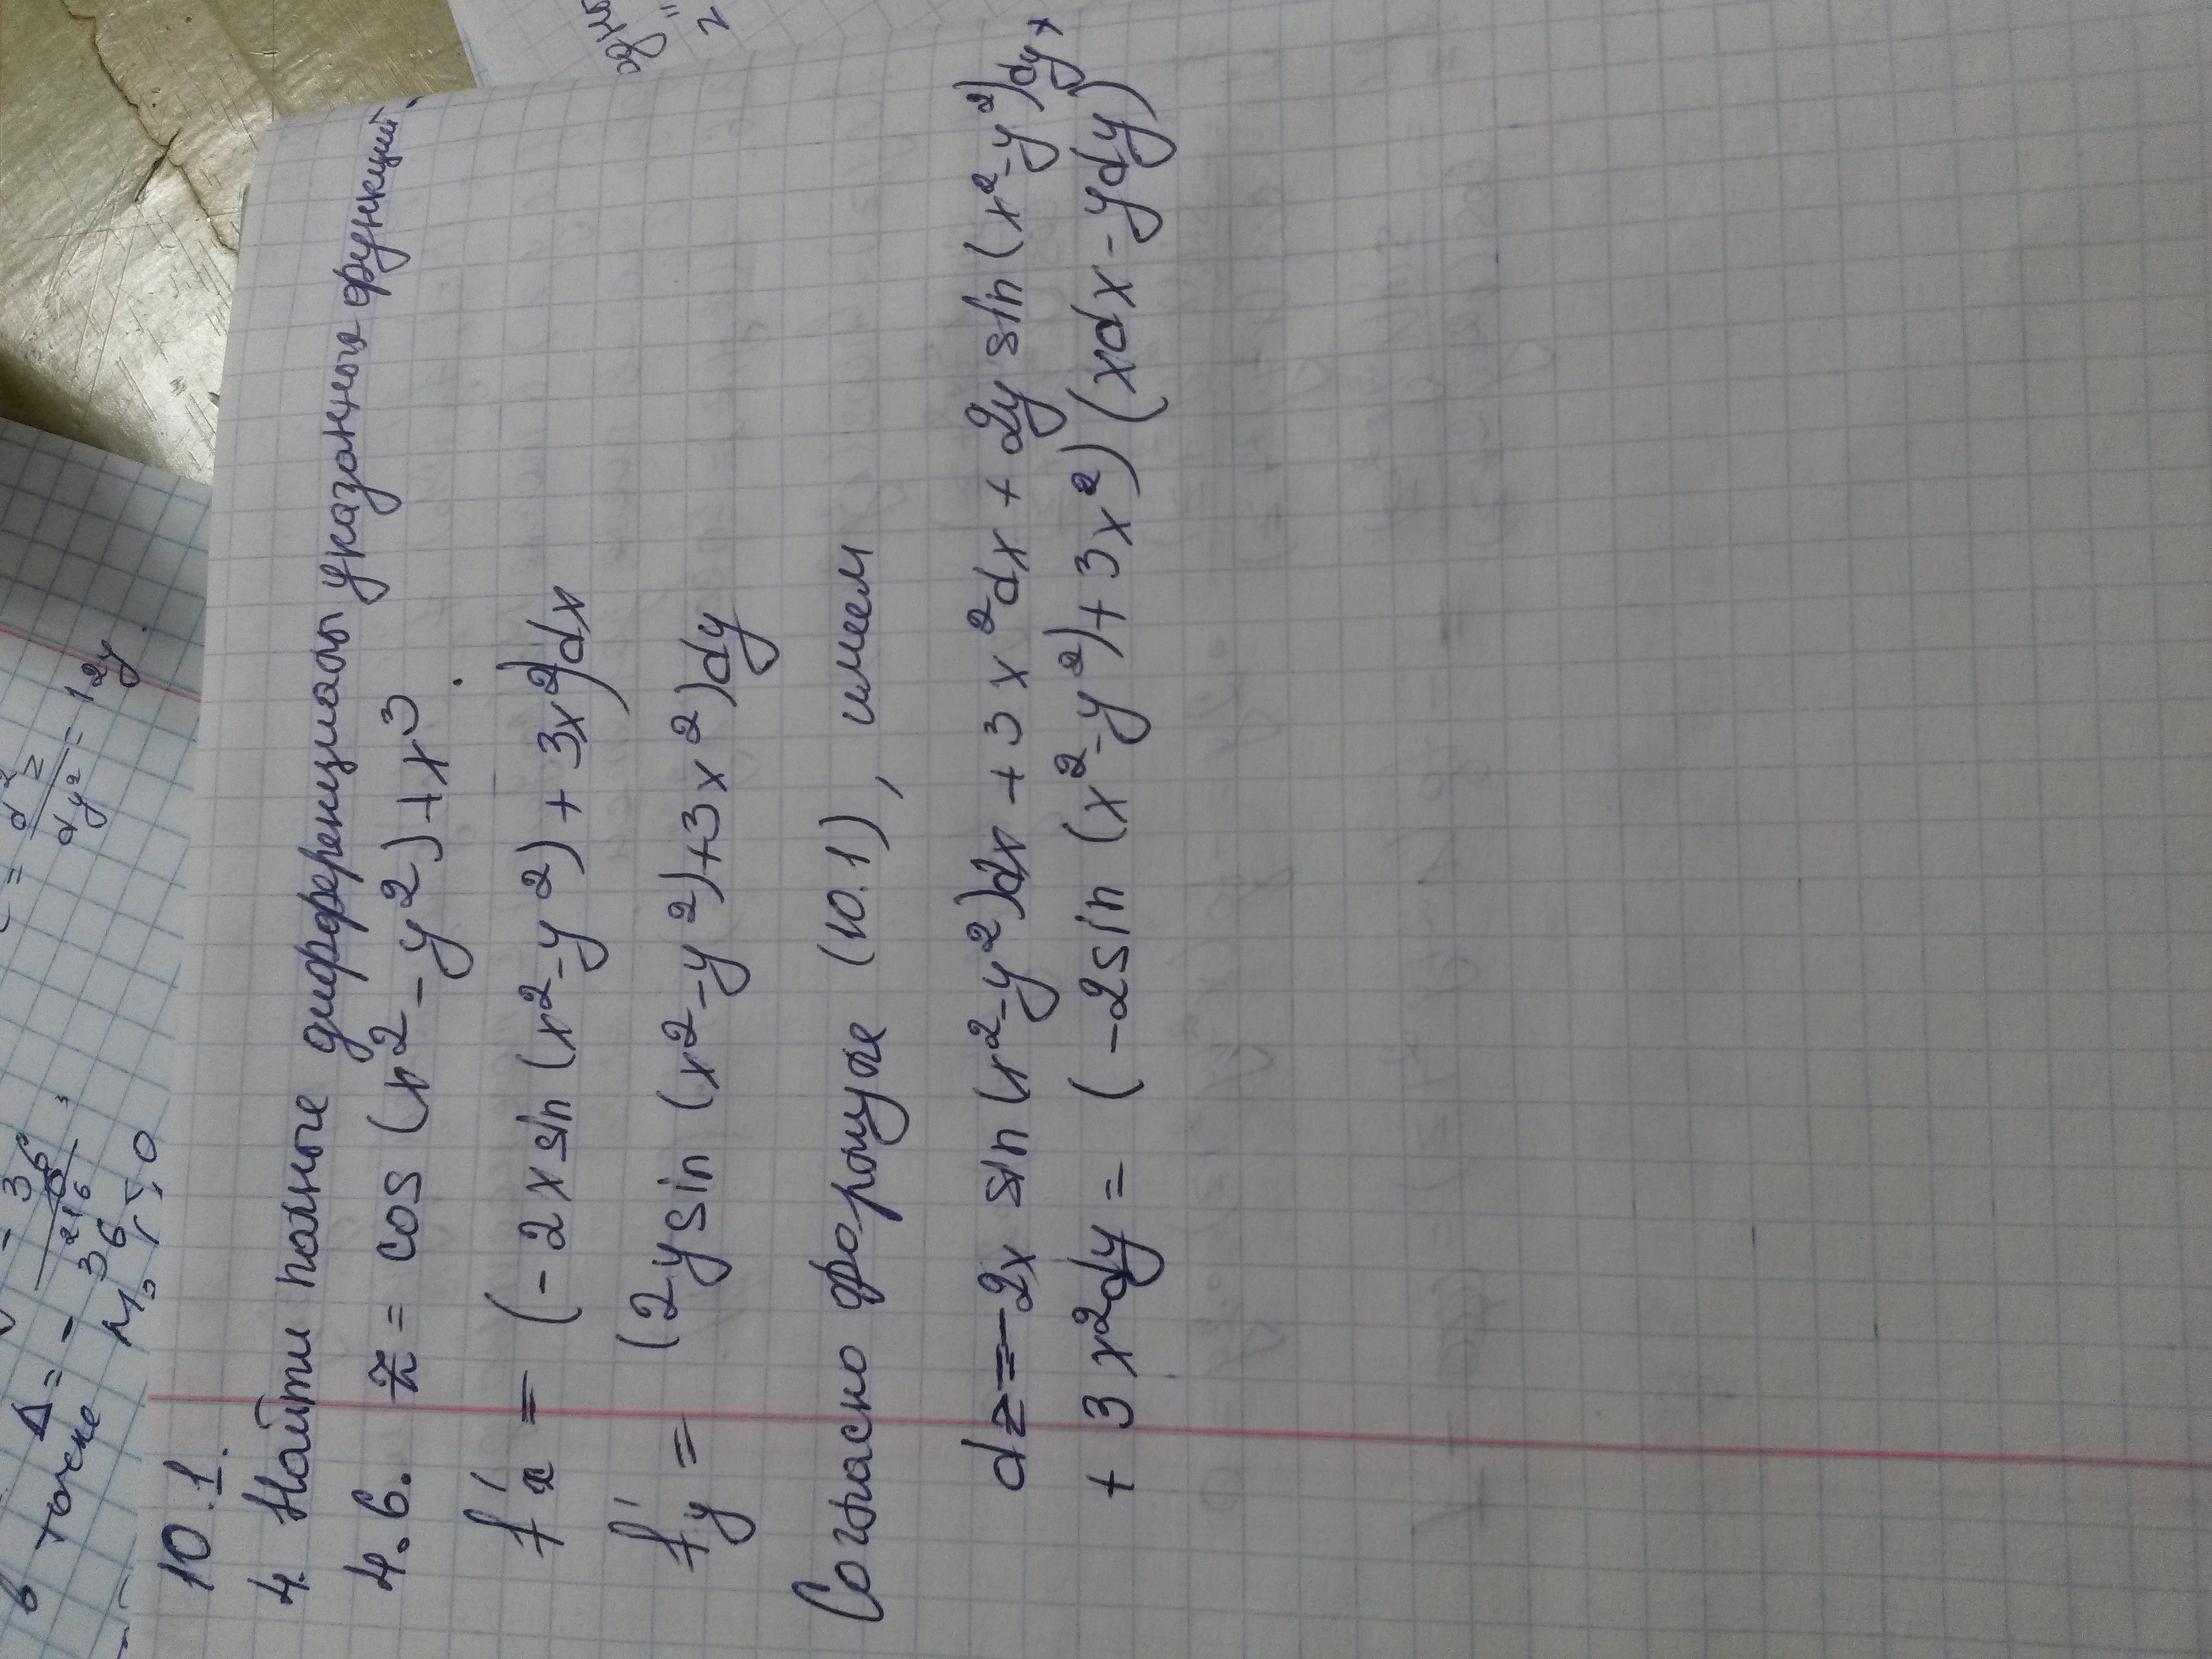 10.1.
4. Найти полные дифференциалы указанных функций
4.6. z = cos (x² - y²) + x³
f'x = (-2x sin (x² - y²) + 3x²)dx
f'y = (2y sin (x² - y²) + 3x²)dy
Согласно формуле (10.1), имеем
dz = -2x sin (x² - y²)dx + 3x²dx + 2y sin (x² - y²)dy +
+ 3x²dy = (-2sin (x² - y²) + 3x²) (xdx - ydy)